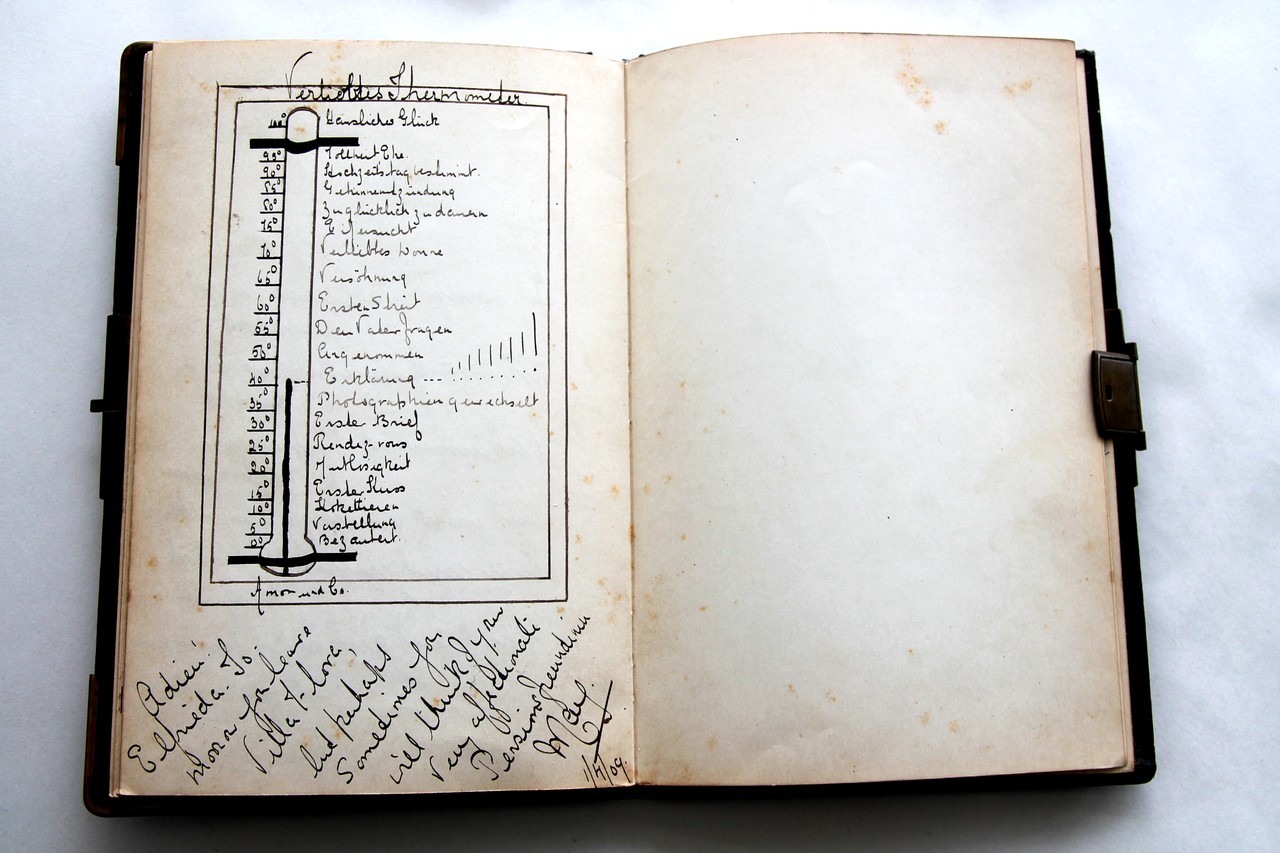 Verliebtes Thermometer.
100° Häusliches Glück
95° Tollheit Ehe.
90° Hochzeitstag bestimmt.
85° Gehirnentzündung
80° Zu glücklich zu dauern
75° Eifersucht
70° Verliebtes Wonne
65° Versöhnung
60° Erster Streit
55° Den Vater fragen
50° Angenommen
40° Erklärung
35° Photographien gewechselt
30° Erster Brief
25° Rendez-vous
20° Mutlosigkeit
15° Erster Kuss
10° Kokettieren
5° Vorstellung
0° Bezaubert.
Amor und Co.
Adieu
Elfrieda. To
morra you leave
Villa Flora,
but perhaps
Sometimes you
will think of your
Very affectionate
Pensionsfreundinin
May.
1/7/09.